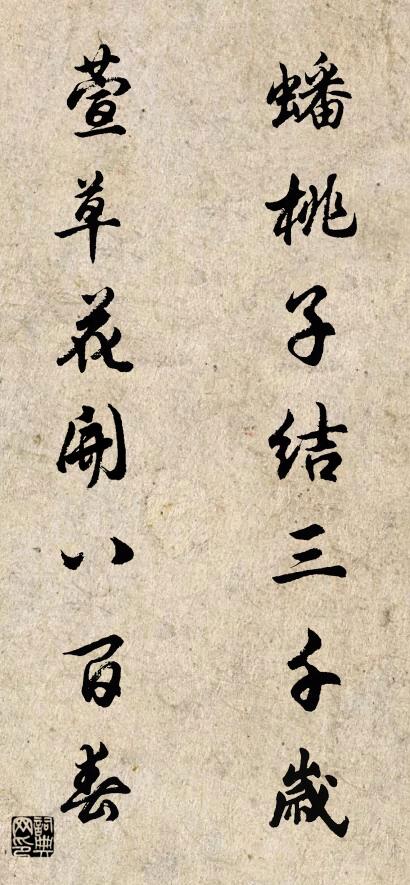 蟠桃子结三千歲
萱草花開八百春
詞典网印